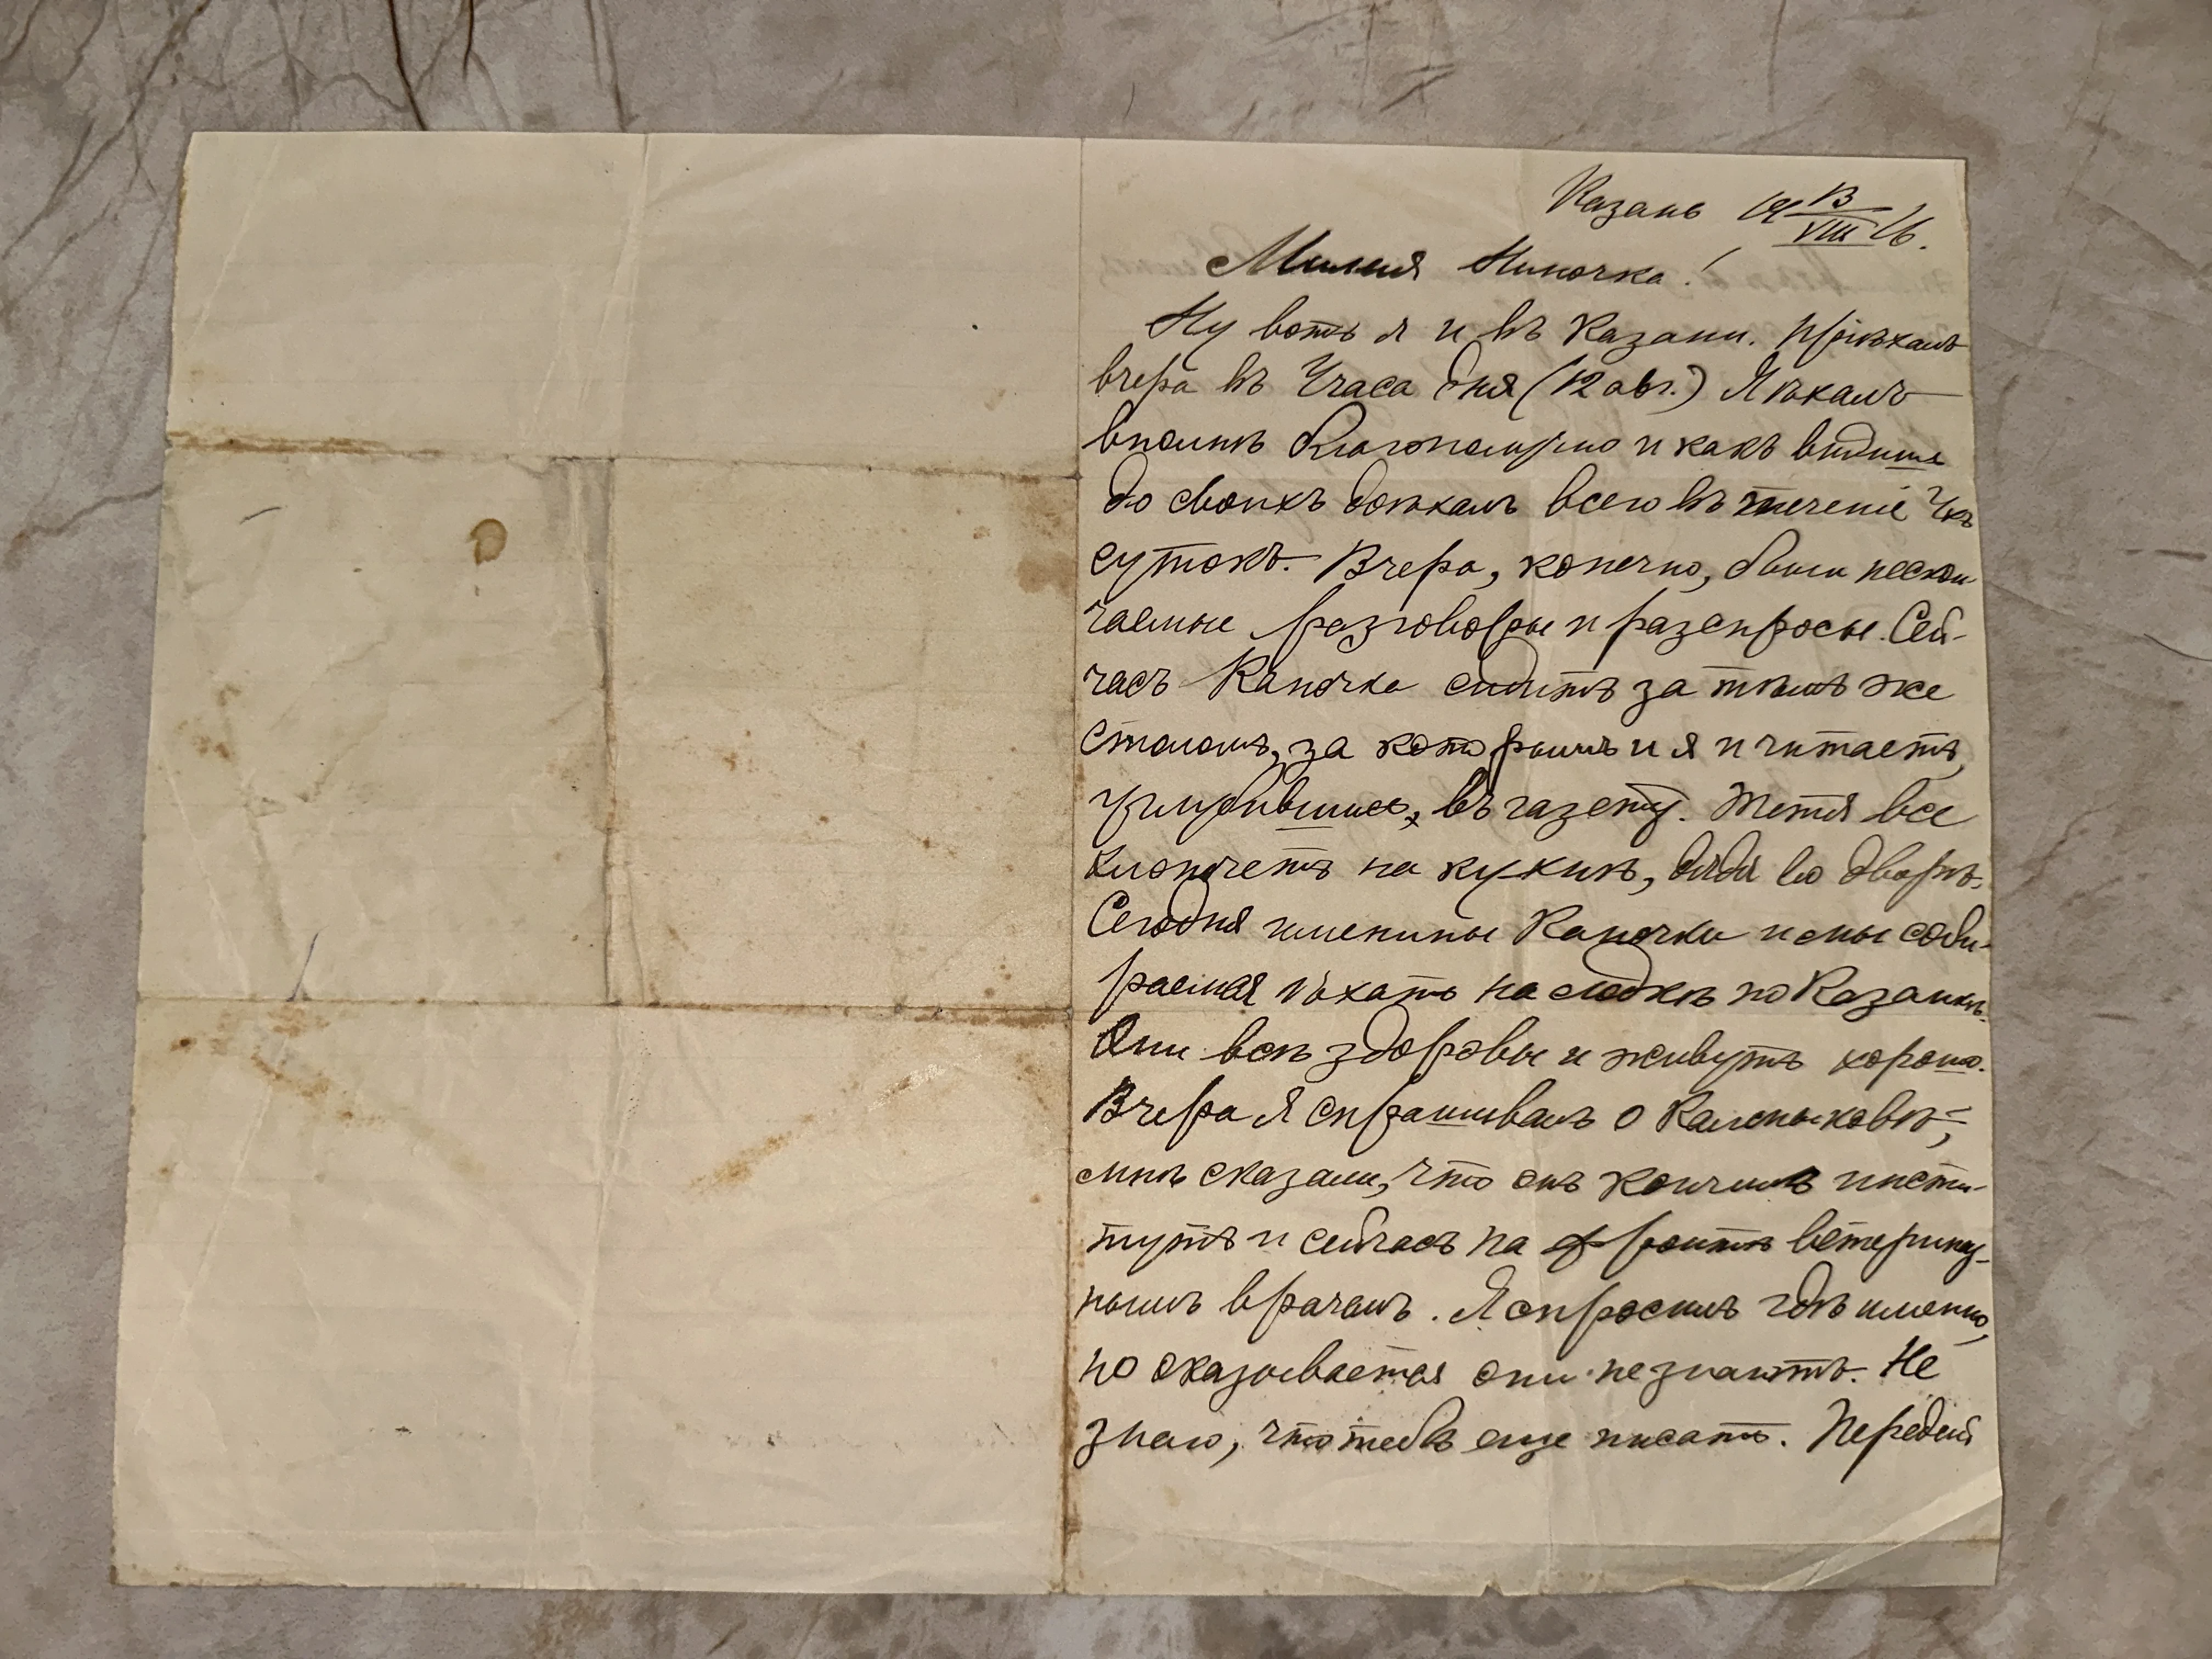 Казань 19 13/VIII 16.
Милая Ниночка!
Ну вотъ я и въ Казани. Пріѣхалъ
вчера въ 4 часа дня (12 авг.) Я ѣхалъ
вполнѣ благополучно и какъ видишь
до своихъ доѣхалъ всего въ теченіе 4хъ
сутокъ. Вчера, конечно, были нескон
чаемые разговоры и разспросы. Сей-
часъ Капочка сидитъ за тѣмъ же
столомъ, за которымъ и я и читаетъ,
углубившись, въ газету. Тетя все
хлопочетъ на кухнѣ, дядя во дворѣ.
Сегодня именины Капочки и мы соби-
раемся ѣхать на лодкѣ по Казанкѣ.
Они всѣ здоровы и живутъ хорошо.
Вчера я спрашивалъ о Калмыковѣ,
мнѣ сказали, что онъ кончилъ инсти-
тутъ и сейчасъ на фронтѣ ветеринар-
нымъ врачемъ. Я спросилъ гдѣ именно,
но оказывается они не знаютъ. Не
знаю, что тебѣ еще писать. Передай